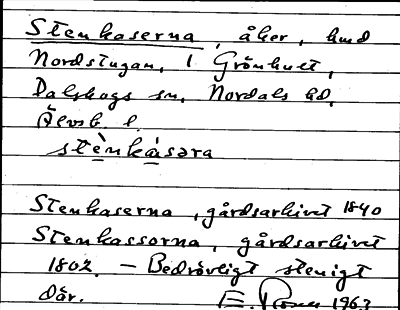 Stenkaserna, åker, hmd
Nordstugan, 1 Grönhult,
Dalskogs sn, Nordals hd,
Älvsb l.
stènkàsəra
Stenkaserna, gårdsarkivet 1840
Stenkassorna, gårdsarkivet
1802. – Bedrövligt stenigt
där. E. 1963